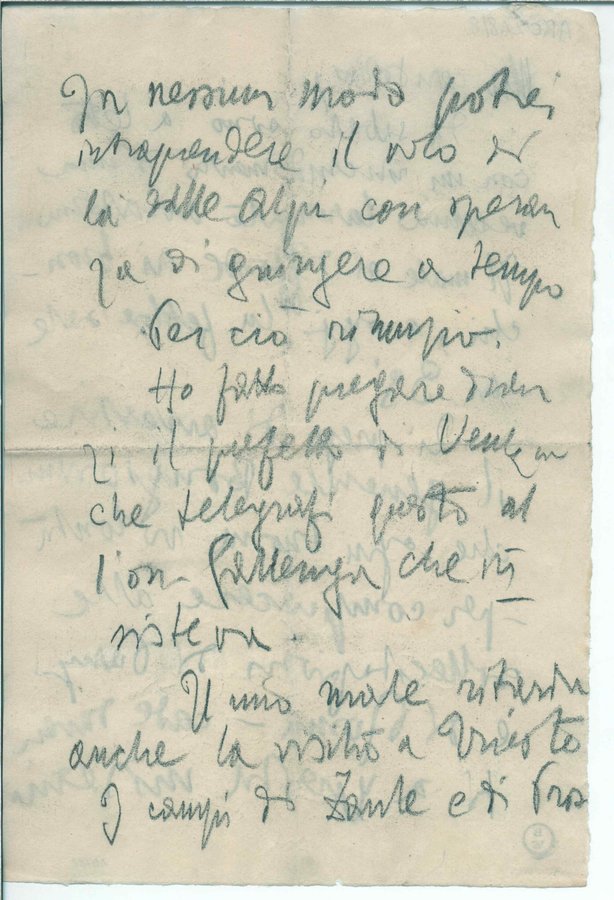 In nessun modo potrei
intraprendere il volo di
là dalle Alpi con speran
za di giungere a tempo
Per ciò rinunzio.
Ho fatto pregare dian
zi il prefetto di Venezia
che telegrafi questo al
l'on. Gallenga che in
sisteva.
Il mio male ritarda
anche la visita a Trieste
I campi di Zante e di Pros